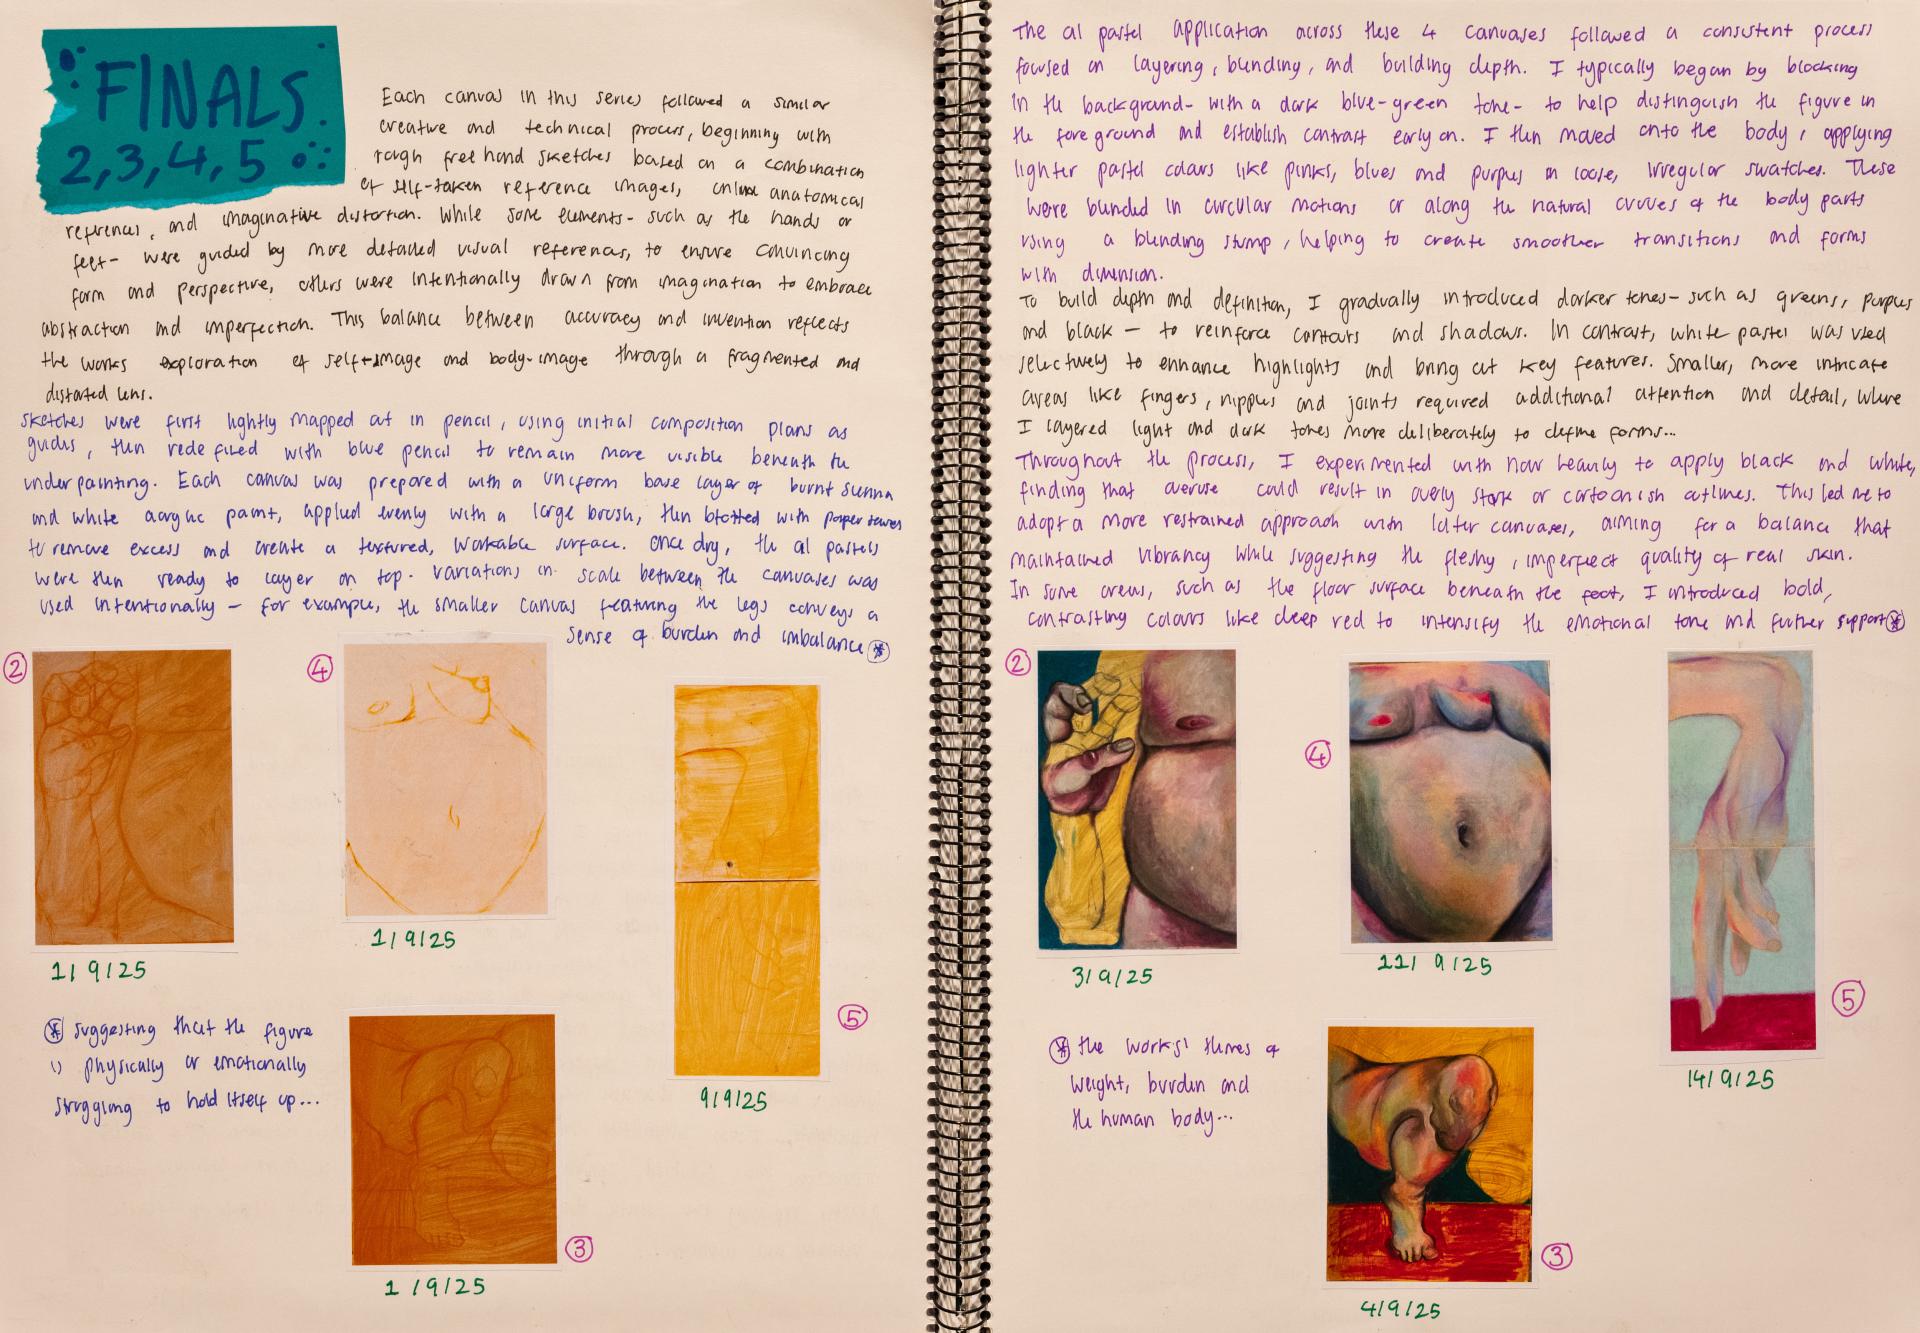 FINALS
2,3,4,5
Each canvas in this series followed a similar
creative and technical process, beginning with
rough freehand sketches based on a combination
of self-taken reference images, online anatomical
references, and imaginative distortion. While some elements- such as the hands or
feet- were guided by more detailed visual references, to ensure convincing
form and perspective, others were intentionally drawn from imagination to embrace
abstraction and imperfection. This balance between accuracy and invention reflects
the works exploration of self-image and body-image through a fragmented and
distorted lens.
Sketches were first lightly mapped out in pencil, using initial composition plans as
guides, then redefined with blue pencil to remain more visible beneath the
underpainting. Each canvas was prepared with a uniform base layer of burnt sienna
and white acrylic paint, applied evenly with a large brush, then blotted with paper towels
to remove excess and create a textured, workable surface. Once dry, the oil pastels
were then ready to layer on top. Variations in scale between the canvases was
used intentionally - for example, the smaller canvas featuring the legs conveys a
sense of burden and imbalance *
2
4
1/9/25
1/9/25
5
9/9/25
* suggesting that the figure
is physically or emotionally
struggling to hold itself up...
3
1/9/25
The oil pastel application across these 4 canvases followed a consistent process
focused on layering, blending, and building depth. I typically began by blocking
in the background- with a dark blue-green tone- to help distinguish the figure in
the foreground and establish contrast early on. I then moved onto the body, applying
lighter pastel colours like pinks, blues and purples in loose, irregular swatches. These
were blended in circular motions or along the natural curves of the body parts
using a blending stump, helping to create smoother transitions and forms
with dimension.
To build depth and definition, I gradually introduced darker tones- such as greens, purples
and black - to reinforce contours and shadows. In contrast, white pastel was used
selectively to enhance highlights and bring out key features. Smaller, more intricate
areas like fingers, nipples and joints required additional attention and detail, where
I layered light and dark tones more deliberately to define forms...
Throughout the process, I experimented with how heavily to apply black and white,
finding that overuse could result in overly stark or cartoonish outlines. This led me to
adopt a more restrained approach with later canvases, aiming for a balance that
maintained vibrancy while suggesting the fleshy, imperfect quality of real skin.
In some areas, such as the floor surface beneath the foot, I introduced bold,
contrasting colours like deep red to intensify the emotional tone and further support *
2
4
3/9/25
11/9/25
5
14/9/25
* the works' themes of
weight, burden and
the human body...
3
4/9/25